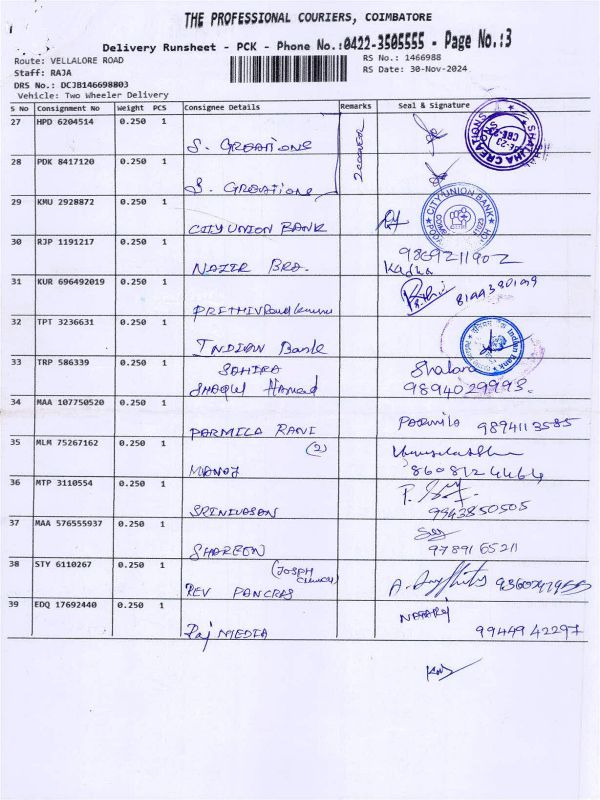 THE PROFESSIONAL COURIERS, COIMBATORE
Delivery Runsheet - PCK - Phone No.:0422-3505555 - Page No.:3
Route: VELLALORE ROAD
RS No.: 1466988
Staff: RAJA
RS Date: 30-Nov-2024
DRS No.: DCJB146698803
Vehicle: Two Wheeler Delivery
S No Consignment No Weight PCS Consignee Details Remarks Seal & Signature
27 HPD 6204514 0.250 1
S. CREATIONS
28 PDK 8417120 0.250 1
S. CREATIONS
29 KMU 2928872 0.250 1
CITY UNION BANK
CITY UNION BANK
30 RJP 1191217 0.250 1
9869211902
NAZIR BRO. Kadha
31 KUR 696492019 0.250 1
8144380149
32 TPT 3236631 0.250 1
INDIAN Bank
Indian Bank
33 TRP 586339 0.250 1
SAHIRA
SHAQUL Hameed 9894029993.
34 MAA 107750520 0.250 1
PARMILA RANI PARMILA 9894113585
35 MLM 75267162 0.250 1
(2)
MANOJ 8608124464
36 MTP 3110554 0.250 1
SRINIVASAN 9943850505
37 MAA 576555937 0.250 1
SHAREEN 9789165211
38 STY 6110267 0.250 1
(JOSPH
CHURCH)
REV PANCRAS
39 EDQ 17692440 0.250 1
NATARAJ
Raj MEDIA 9944942297